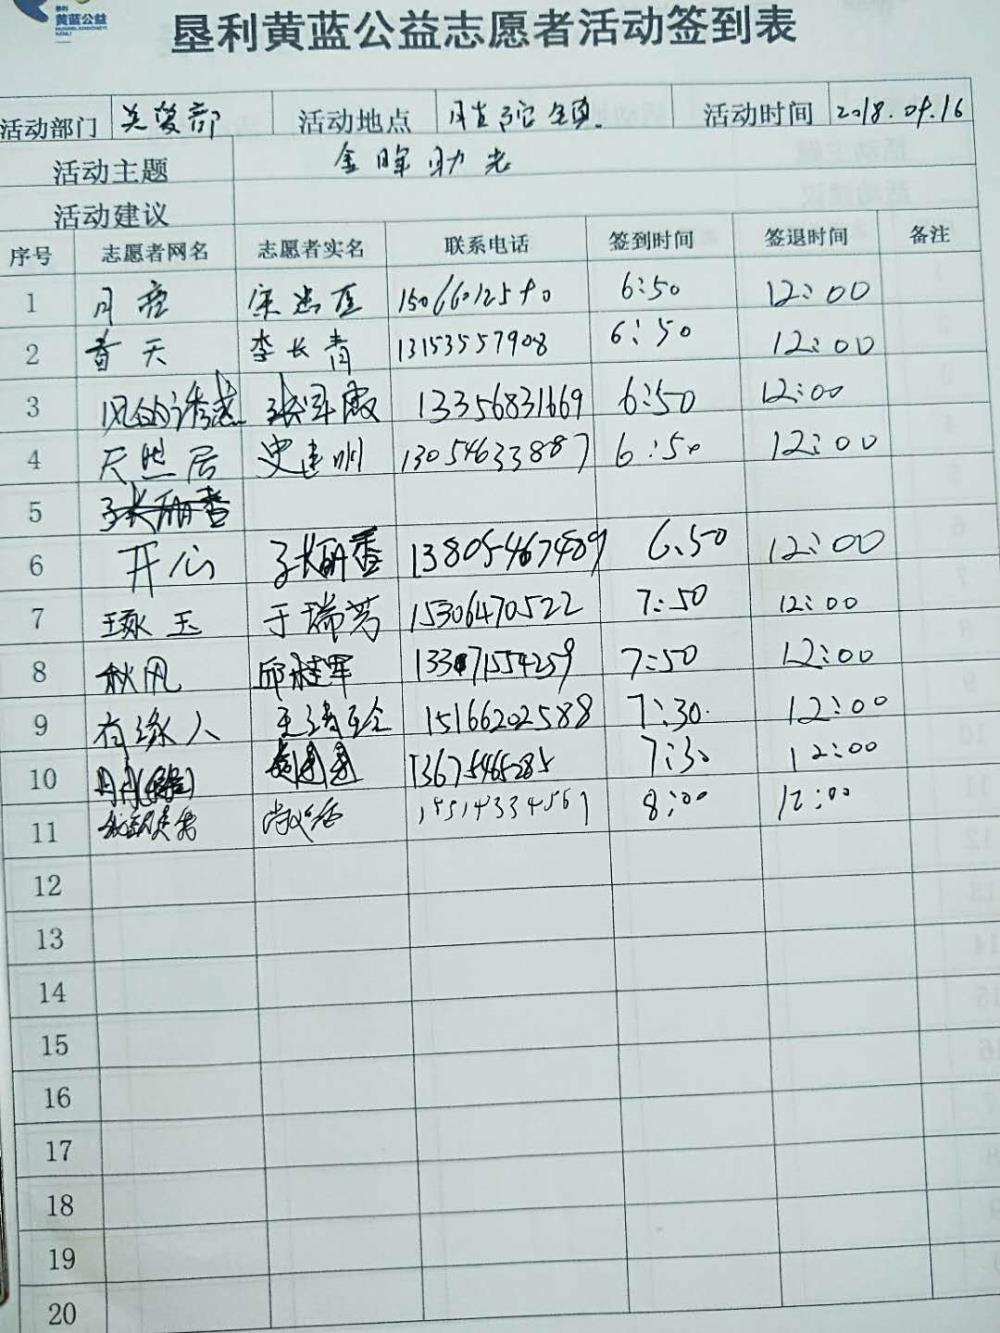 黄蓝公益
垦利黄蓝公益志愿者活动签到表
活动部门 关爱部 活动地点 胜坨镇 活动时间 2018.09.16
活动主题 金晖助老
活动建议
序号 志愿者网名 志愿者实名 联系电话 签到时间 签退时间 备注
1 月亮 6:50 12:00
2 春天 李长青 13153557908 6:50 12:00
3 风的诱惑 张军霞 13356831669 6:50 12:00
4 天然居 史建州 13054633887 6:50 12:00
5
6 开心 张丽香 13805467489 6:50 12:00
7 琢玉 于瑞芳 15306470522 7:50 12:00
8 秋风 邱桂军 13371554259 7:50 12:00
9 有缘人 15166202588 7:30 12:00
10 13675465285 7:30 12:00
11 8:00 12:00
12
13
14
15
16
17
18
19
20